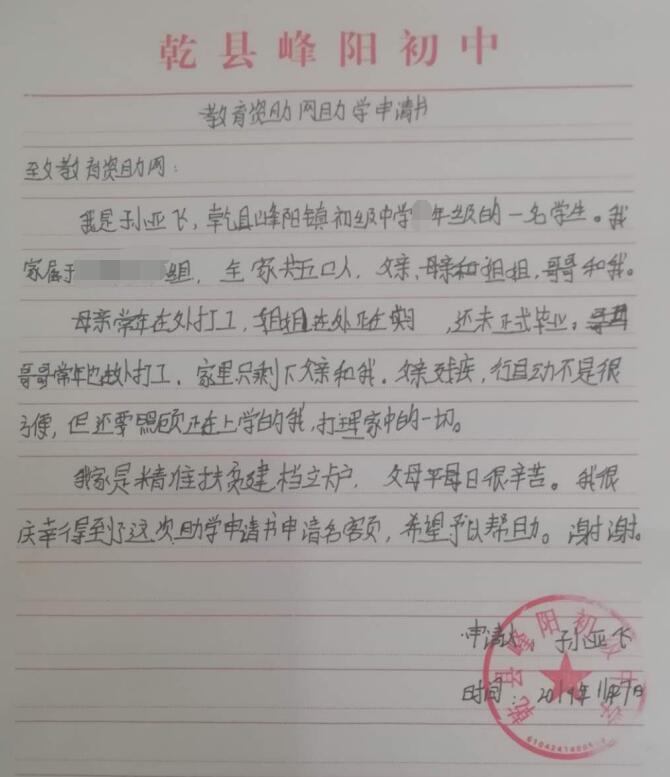 乾县峰阳初中
教育资助网助学申请书
致教育资助网：
我是孙亚飞，乾县峰阳镇初级中学 年级的一名学生。我
家属于 组，全家共五口人，父亲、母亲和姐姐，哥哥和我。
母亲常年在外打工，姐姐在外正在实习，还未正式毕业，
哥哥常年也在外打工，家里只剩下父亲和我。父亲残疾，行动不是很
方便，但还要照顾正在上学的我，打理家中的一切。
我家是精准扶贫建档立卡户，父母平日很辛苦。我很
庆幸得到了这次助学申请书申请名额，希望予以帮助。谢谢。
申请人：孙亚飞
时间：2019年11月9日
乾县峰阳初级中学